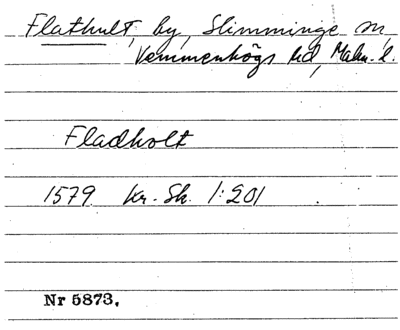 Flathult, by, Slimminge sn,
Vemmenhögs hd, Malm. l.
Fladholt
1579 Kr. Sk. 1:201
Nr 5873.